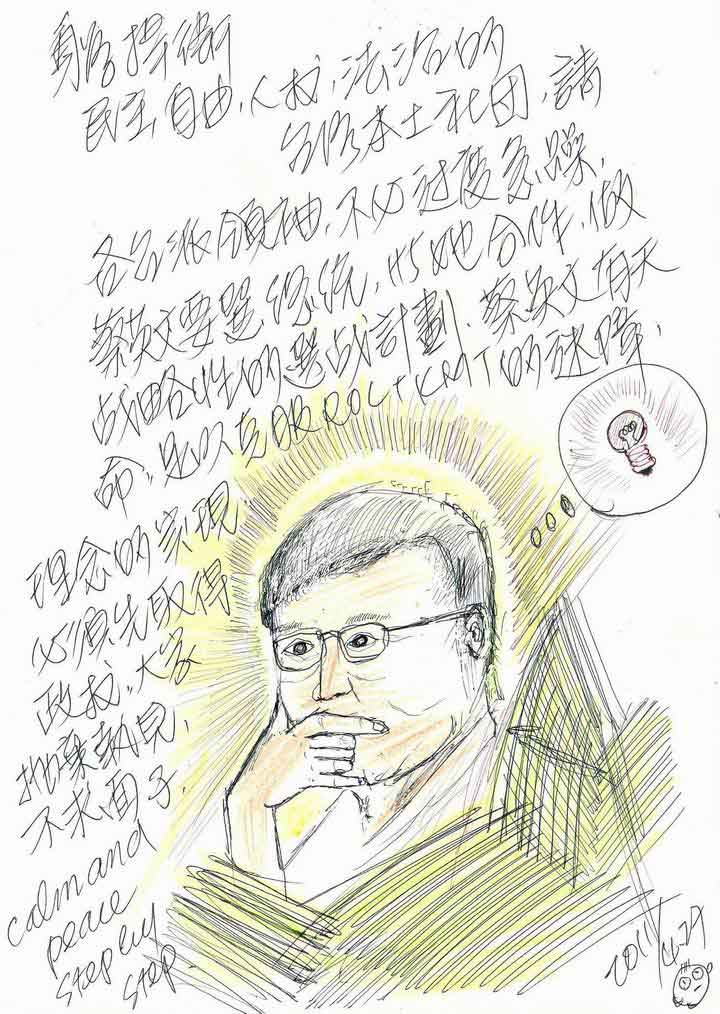 勇於捍衛
民主,自由,人权,法治的
台湾本土社団,請
各台派領袖,不必过度急躁,
蔡英文要選総統,与她合作,做
战略性的選战計劃.蔡英文有天
命,足以克服ROC+KMT的迷障,
理念的实現
必須先取得
政权,大家
拋棄執見,
不求面子.
calm and
peace
step by
step.
2011/4.29